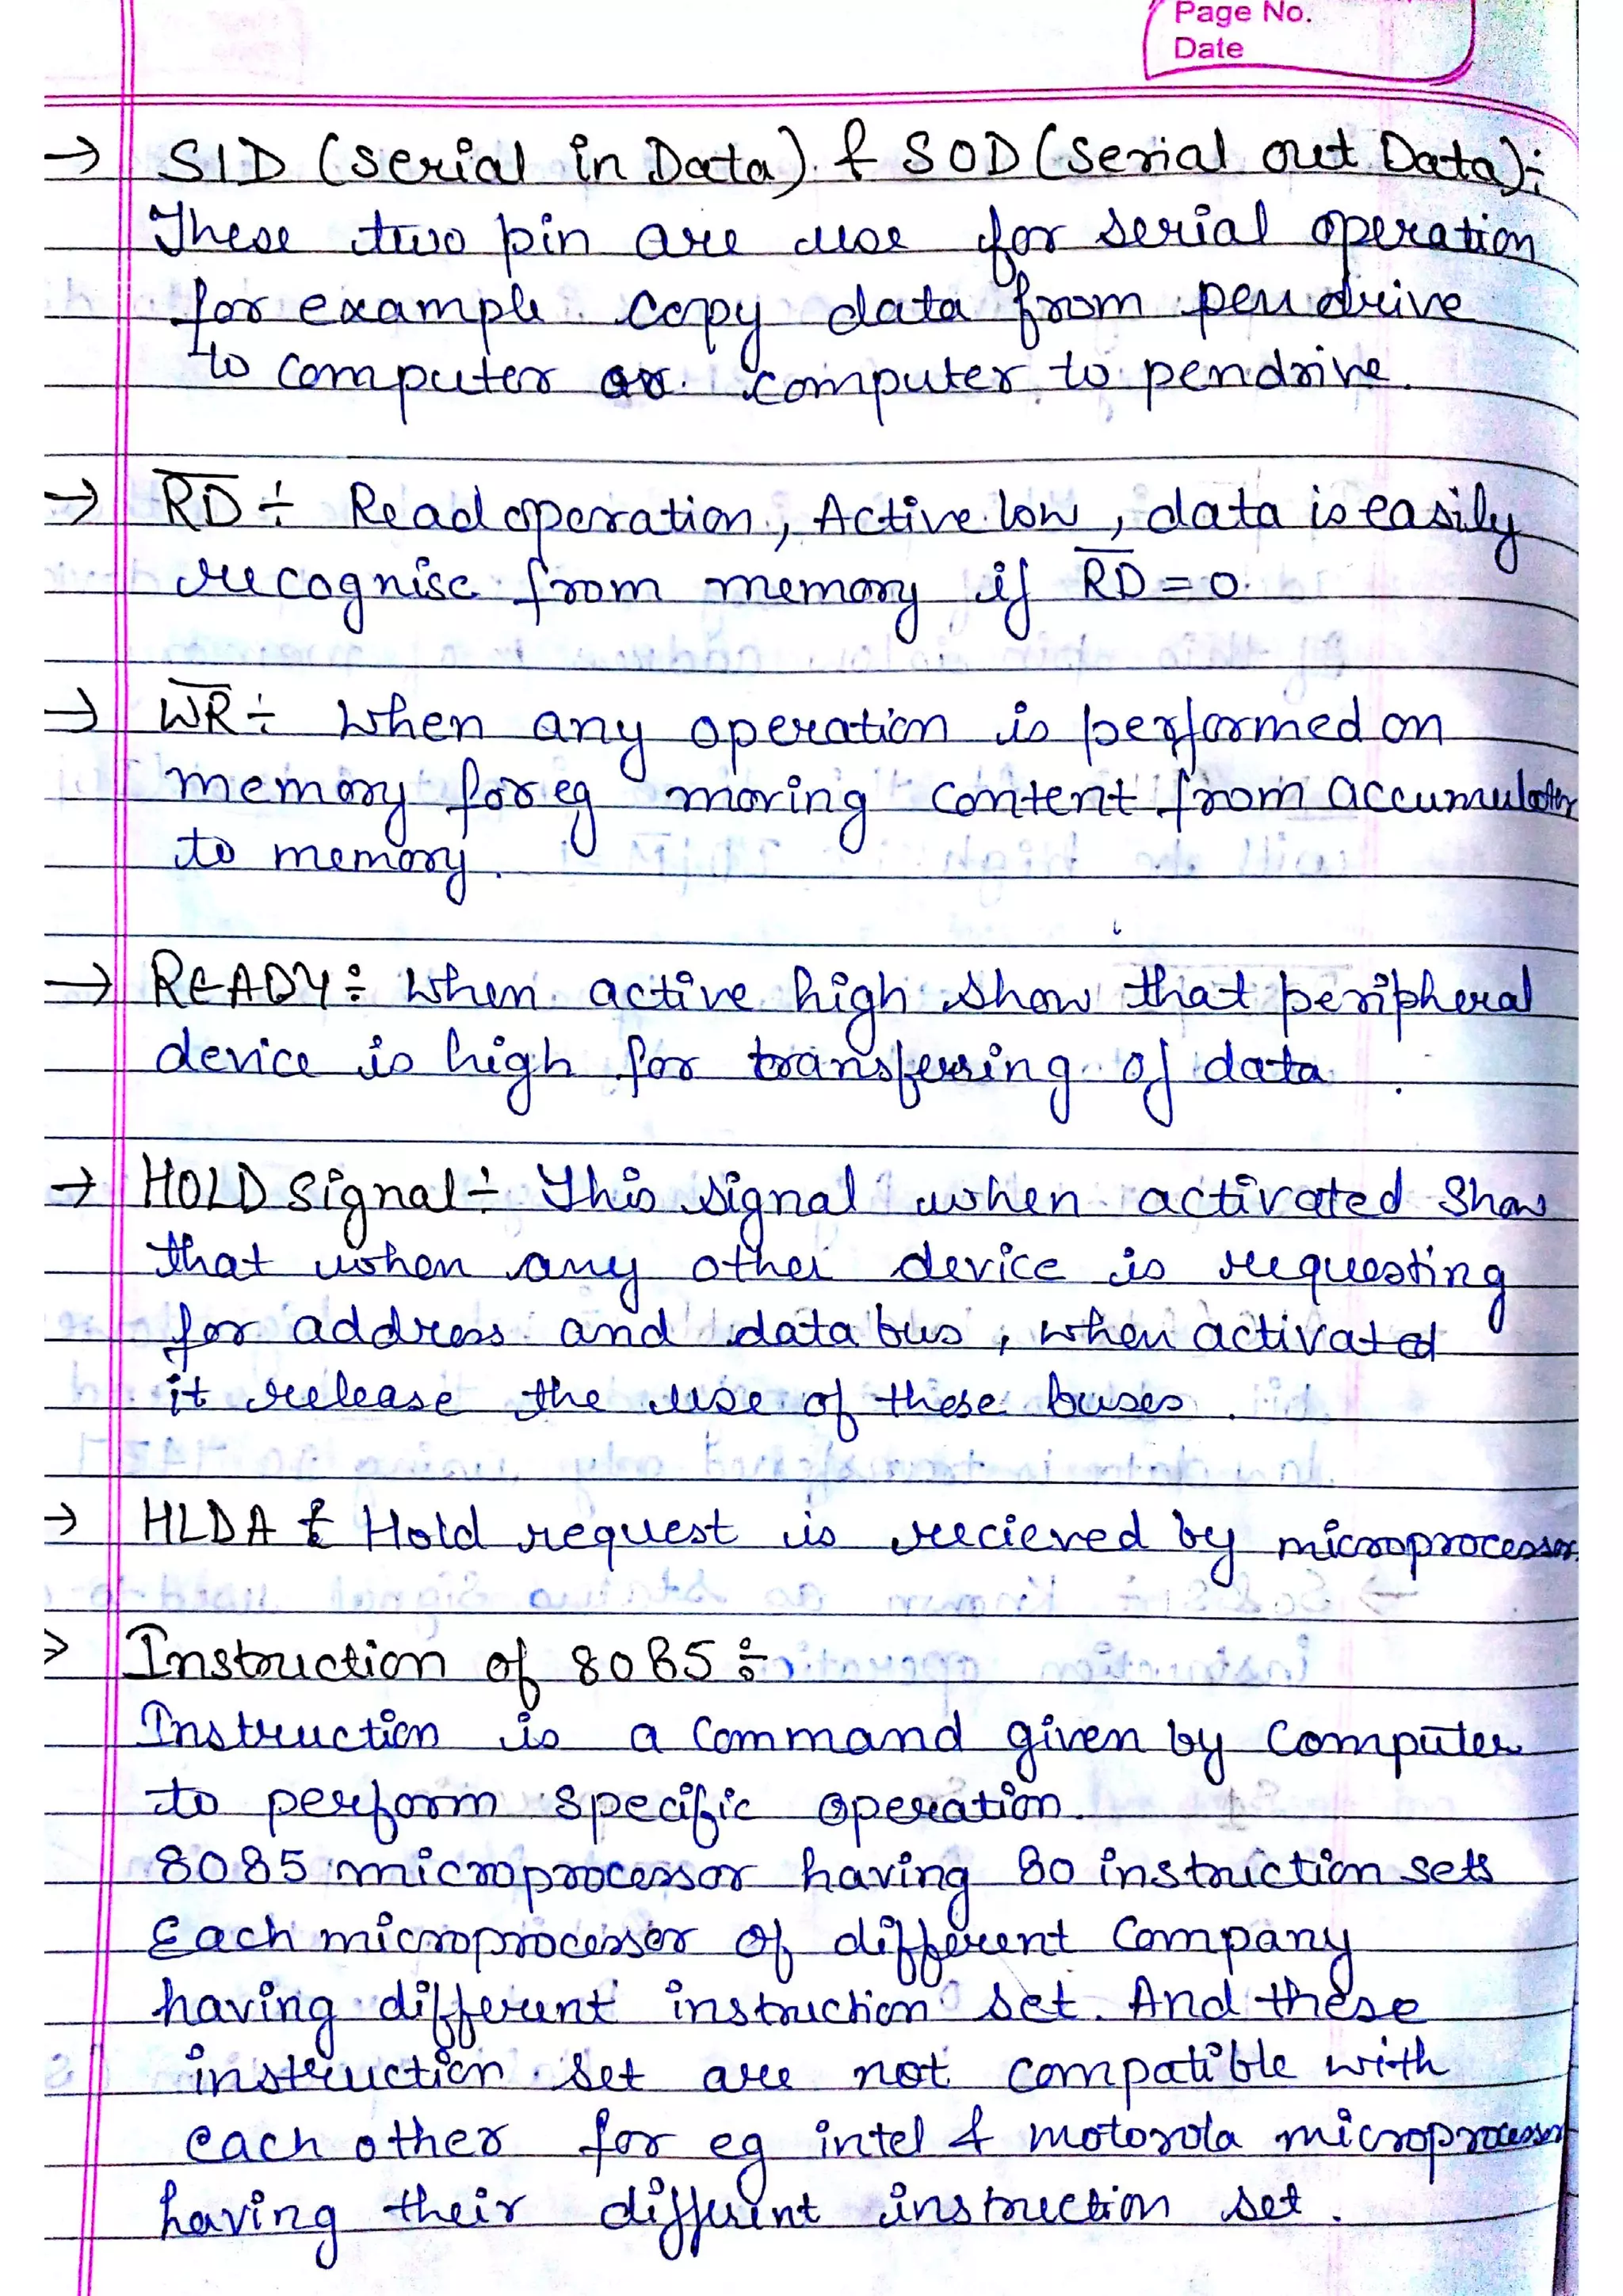 Page No.
Date
→ SID (serial in Data) & SOD (serial out Data):-
These two pin are use for serial operation
for example copy data from pendrive
to computer or computer to pendrive.
→ R̅D̅ ÷ Read operation, Active low, data is easily
recognise from memory if R̅D̅ = 0.
→ W̅R̅ ÷ When any operation is performed on
memory for eg moving content from accumulator
to memory.
→ READY ÷ When active high show that peripheral
device is high for transferring of data.
→ HOLD signal ÷ This signal when activated show
that when any other device is requesting
for address and data bus, when activated
it release the use of these buses.
→ HLDA ÷ Hold request is recieved by microprocessor
> Instruction of 8085 ÷
Instruction is a command given by computer
to perform specific operation.
8085 microprocessor having 80 instruction sets
Each microprocessor of different company
having different instruction set. And these
instruction set are not compatible with
each other for eg intel & motorola microprocessor
having their different instruction set.